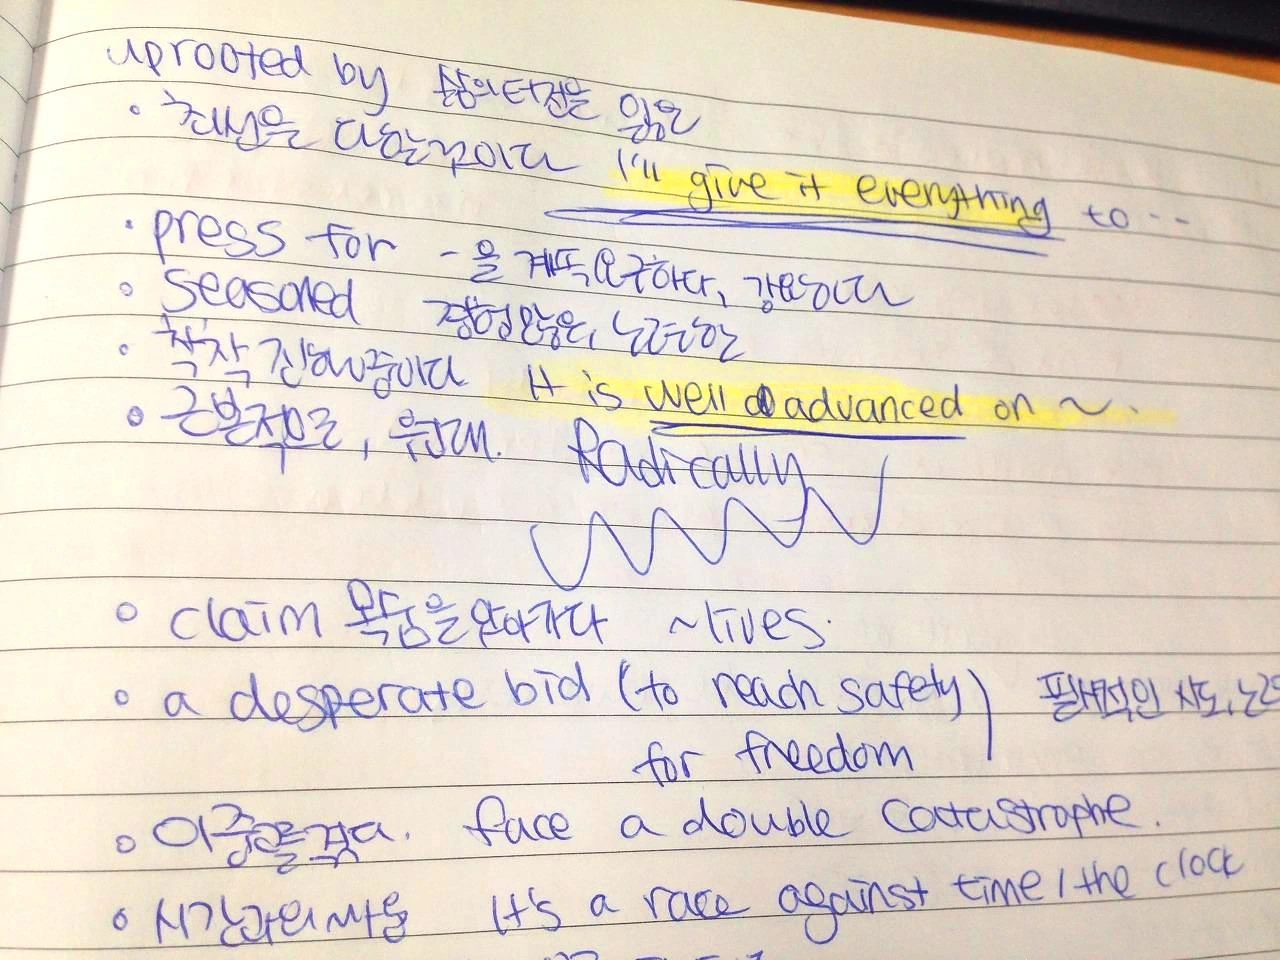 uprooted by 삶의 터전을 잃은
· 최선을 다할것이다 I'll give it everything to ··
· press for ~을 계속 요구하다, 강요하다
· seasoned 경험많은, 노련한
· 착착 진행중이다 It is well advanced on ~.
· 근본적으로, Radically
· claim 목숨을 앗아가다 ~lives.
· a desperate bid (to reach safety) 필사적인 시도, 노력
for freedom
· 이중고를 겪다. face a double catastrophe.
· 시간과의 싸움 It's a race against time / the clock